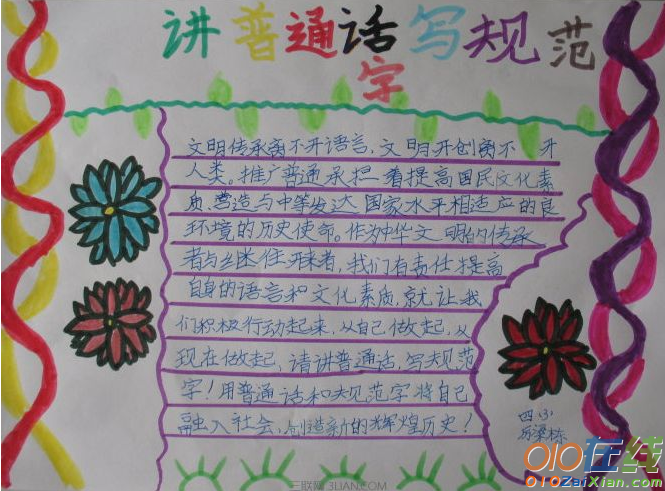 讲普通话写规范
字
文明传承离不开语言,文明开创离不开
人类。推广普通承担着提高国民文化素
质营造与中等发达国家水平相适应的良
环境的历史使命。作为中华文明的传承
者与继往开来者,我们有责任提高
自身的语言和文化素质,就让我
们积极行动起来,从自己做起,从
现在做起,请讲普通话,写规范
字!用普通话和规范字将自己
融入社会,创造新的辉煌历史!
四.(3)
三联网 3LIAN.COM
010在线
010ZaiXian.com